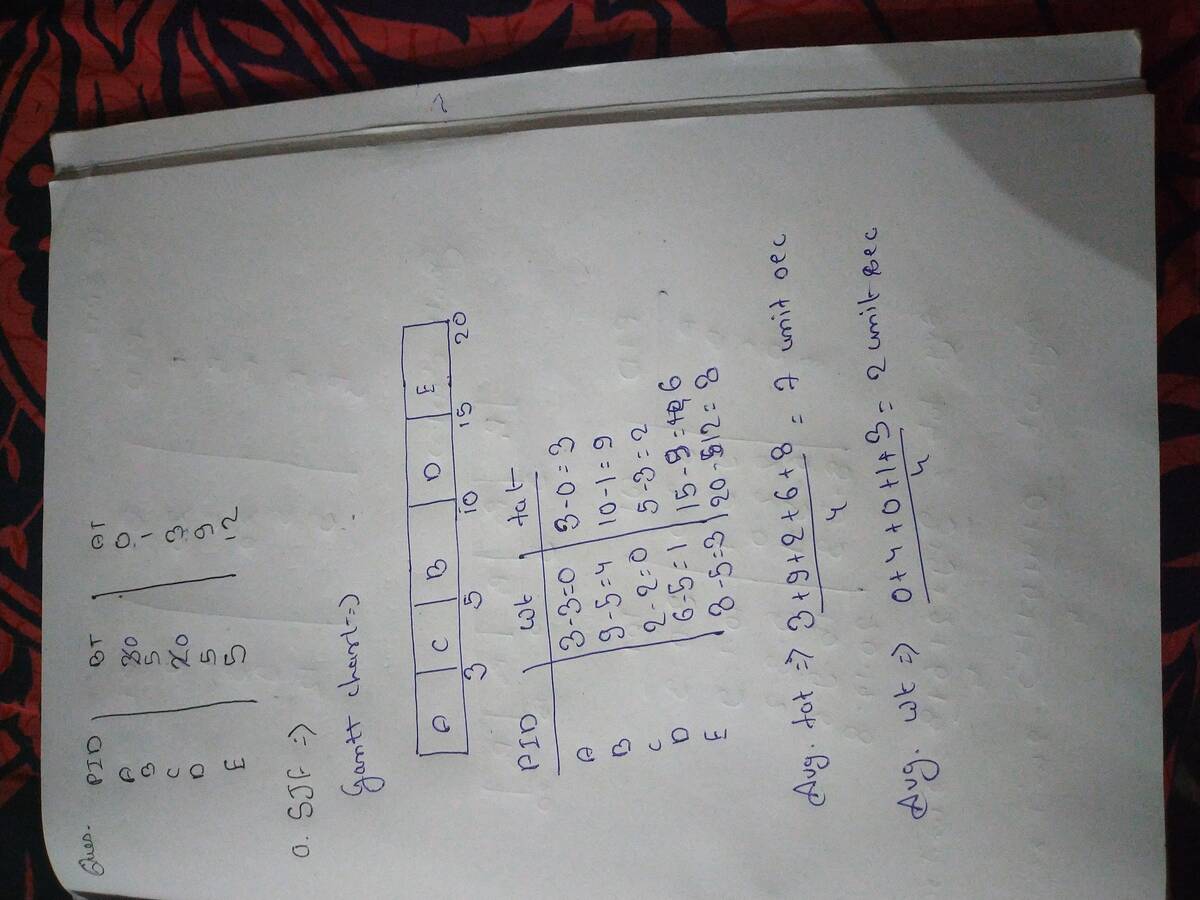 Ques. PID BT AT
A 30 0
B 5 1
C 20 3
D 5 9
E 5 12
a. SJF =>
Gantt chart =>
A C B D E
3 5 10 15 20
PID wt tat
A 3-3=0 3-0=3
B 9-5=4 10-1=9
C 2-2=0 5-3=2
D 6-5=1 15-9= 6
E 8-5=3 20-12=8
Avg. tat => 3+9+2+6+8 = 7 unit sec
4
Avg. wt => 0+4+0+1+3 = 2 unit sec
4